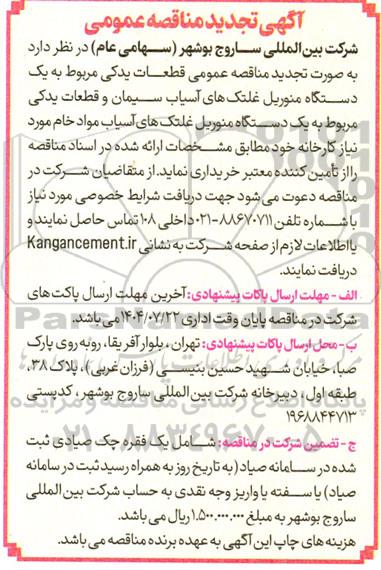 آگهی تجدید مناقصه عمومی
شرکت بین‌المللی ساروج بوشهر (سهامی عام) در نظر دارد
به صورت تجدید مناقصه عمومی قطعات یدکی مربوط به یک
دستگاه منوریل غلتک های آسیاب سیمان و قطعات یدکی
مربوط به یک دستگاه منوریل غلتک های آسیاب مواد خام مورد
نیاز کارخانه خود مطابق مشخصات ارائه شده در اسناد مناقصه
را از تأمین کننده معتبر خریداری نماید. از متقاضیان شرکت در
مناقصه دعوت می شود جهت دریافت شرایط خصوصی مورد نیاز
با شماره تلفن ۸۸۶۷۰۷۱۱-۰۲۱ داخلی ۱۰۸ تماس حاصل نمایند و
یا اطلاعات لازم از صفحه شرکت به نشانی Kangancement.ir
دریافت نمایند.
الف - مهلت ارسال پاکات پیشنهادی: آخرین مهلت ارسال پاکت های
شرکت در مناقصه پایان وقت اداری ۱۴۰۴/۰۷/۲۲ می باشد.
ب - محل ارسال پاکات پیشنهادی: تهران، بلوار آفریقا، روبه روی پارک
صبا، خیابان شهید حسین بنیسی (فرزان غربی)، پلاک ۳۸،
طبقه اول، دبیرخانه شرکت بین المللی ساروج بوشهر، کدپستی
۱۹۶۸۸۴۴۷۱۳
ج - تضمین شرکت در مناقصه: شامل یک فقره چک صیادی ثبت
شده در سامانه صیاد (به تاریخ روز به همراه رسید ثبت در سامانه
صیاد) یا سفته یا واریز وجه نقدی به حساب شرکت بین المللی
ساروج بوشهر به مبلغ ۱.۵۰۰.۰۰۰.۰۰۰ ریال می باشد.
هزینه های چاپ این آگهی به عهده برنده مناقصه می باشد.